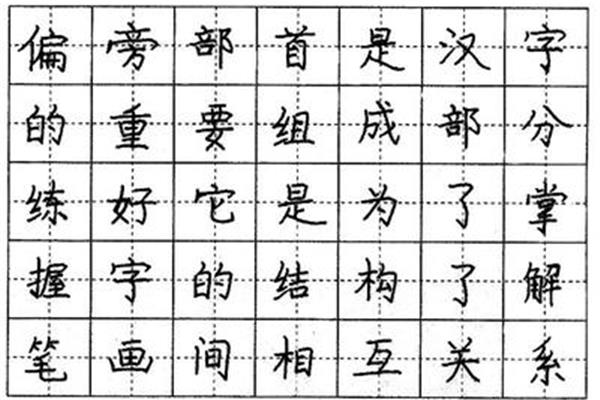 偏旁部首是汉字
的重要组成部分
练好它是为了掌
握字的结构了解
笔画间相互关系